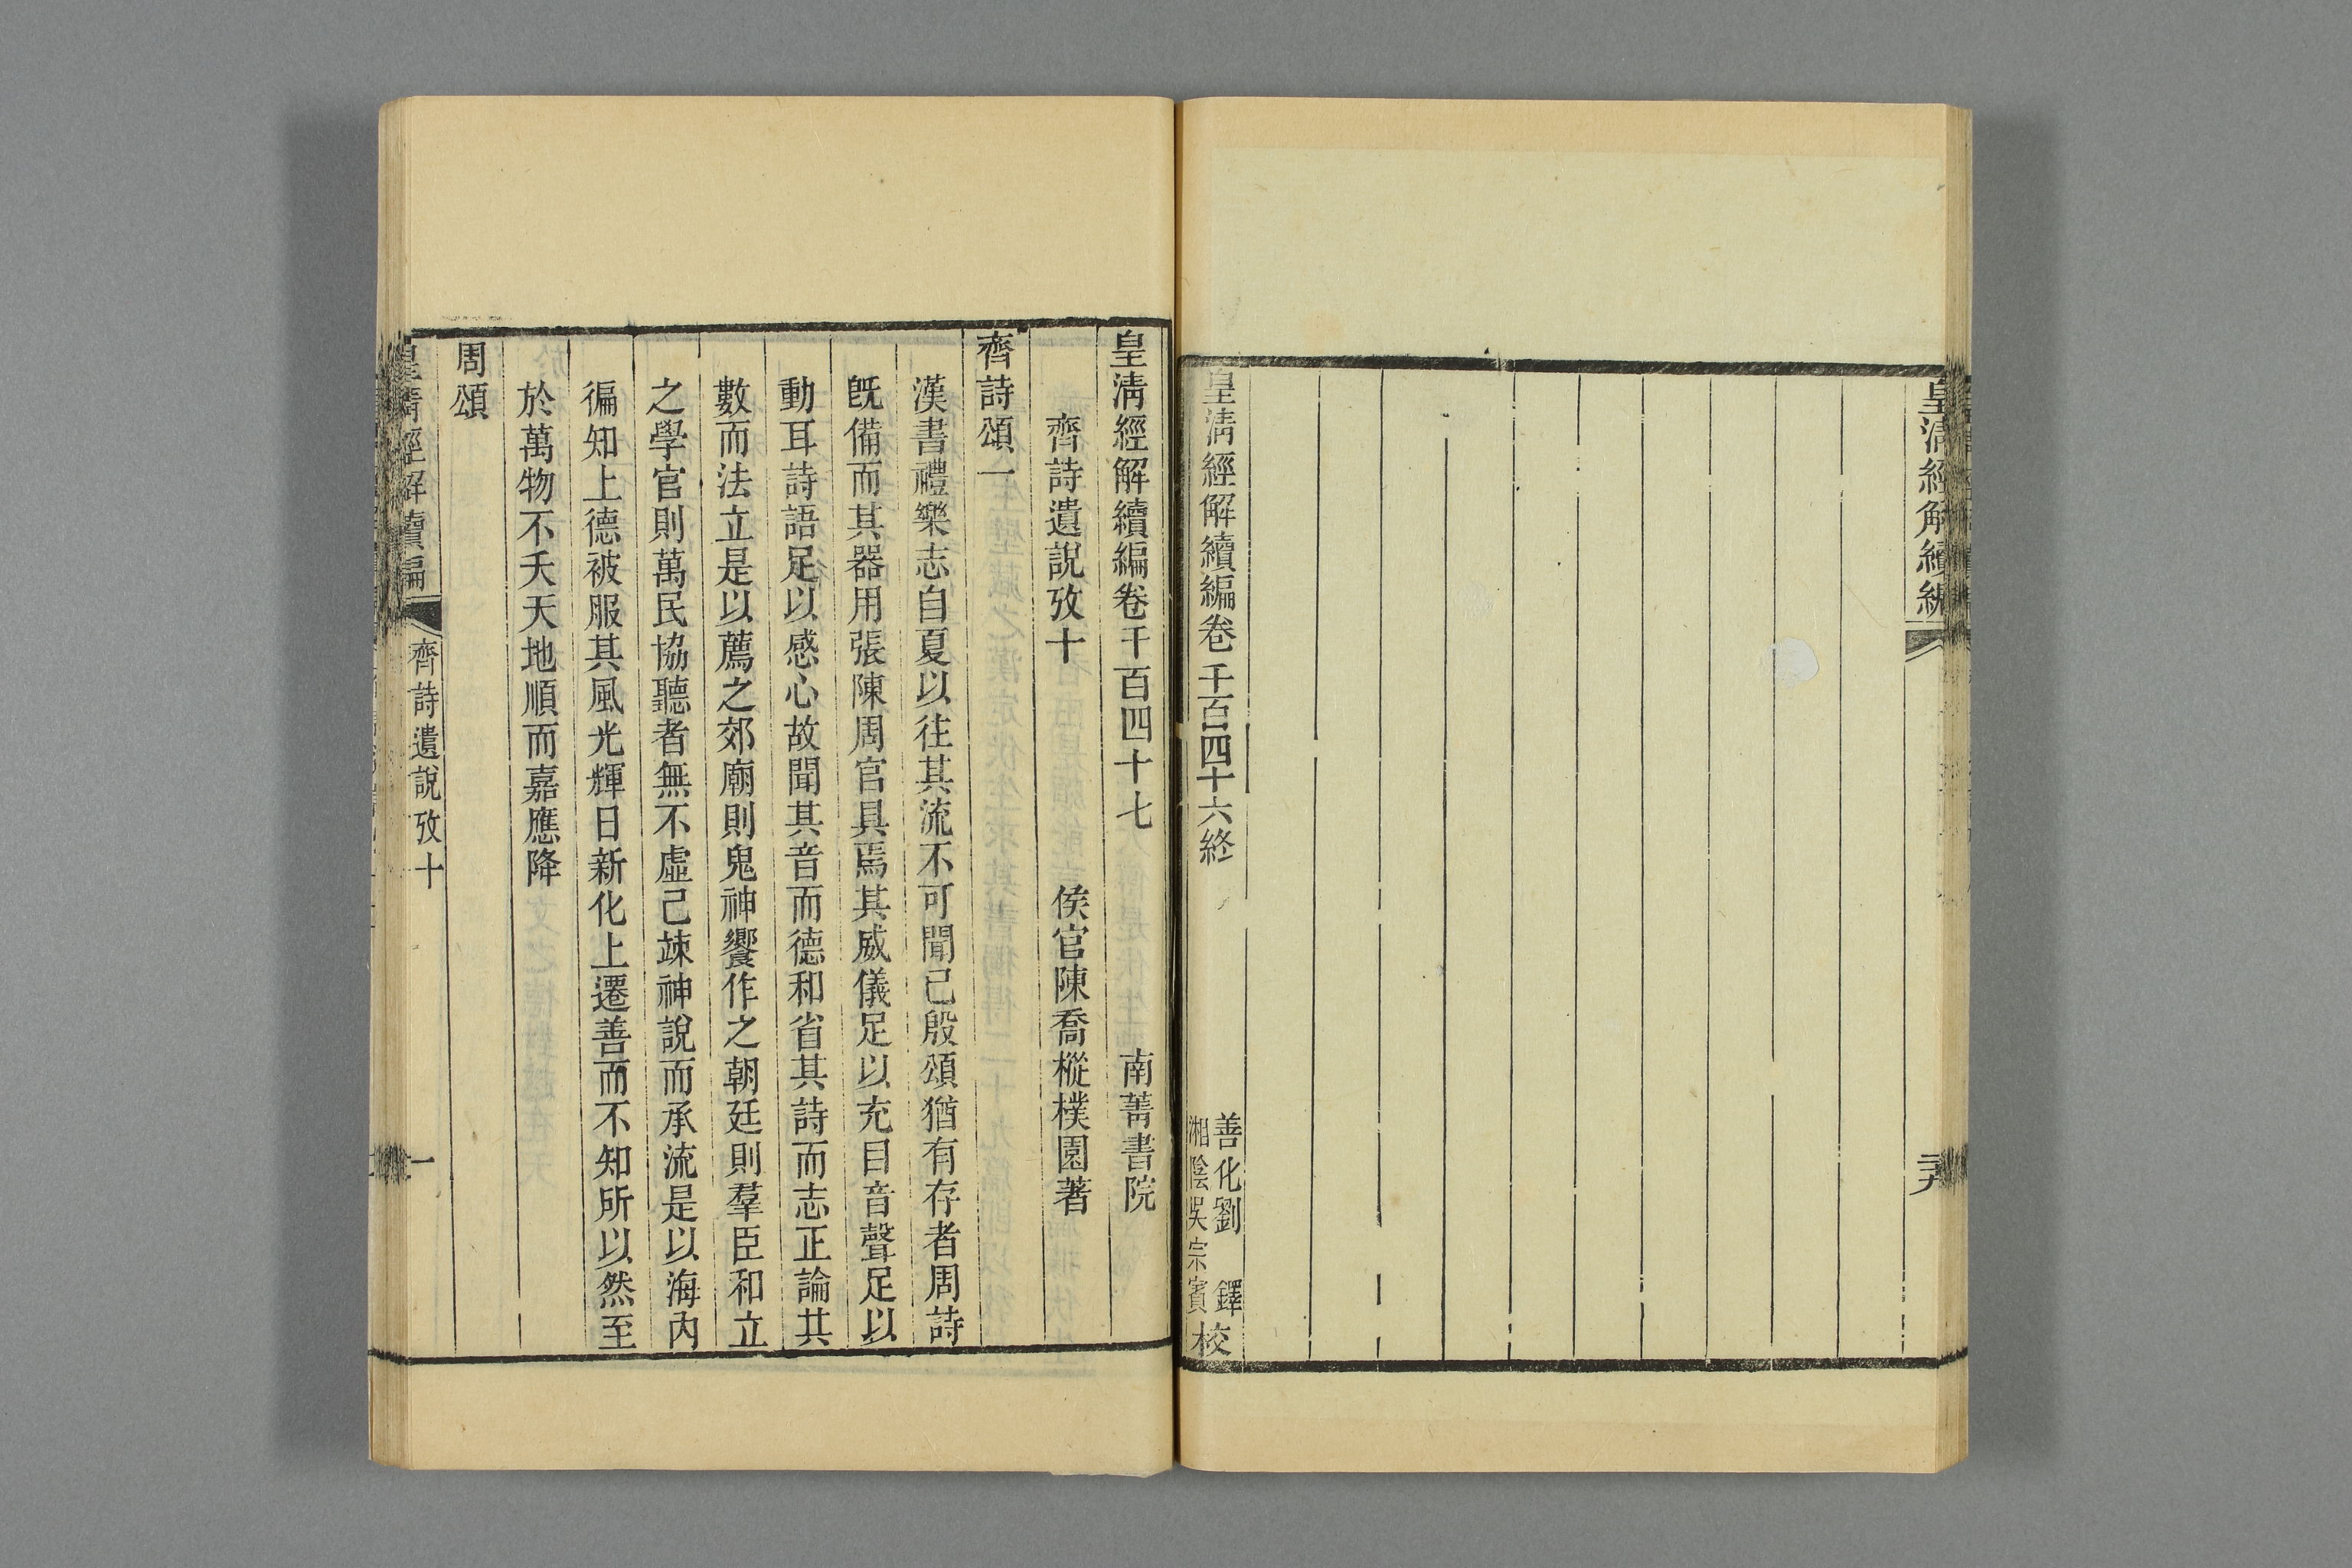 皇清經解續編
皇清經解續編卷千百四十六終
善化劉鐸
湘陰吳宗賓
校
皇清經解續編卷千百四十七
南菁書院
齊詩遺說攷十
侯官陳喬樅樸園著
齊詩頌一
漢書禮樂志自夏以往其流不可聞已殷頌猶有存者周詩
旣備而其器用張陳周官具焉其威儀足以充目音聲足以
動耳詩語足以感心故聞其音而德和省其詩而志正論其
數而法立是以薦之郊廟則鬼神饗作之朝廷則羣臣和立
之學官則萬民協聽者無不虛己竦神說而承流是以海內
徧知上德被服其風光輝日新化上遷善而不知所以然至
於萬物不夭天地順而嘉應降
周頌
皇清經解續編
齊詩遺說攷十
一